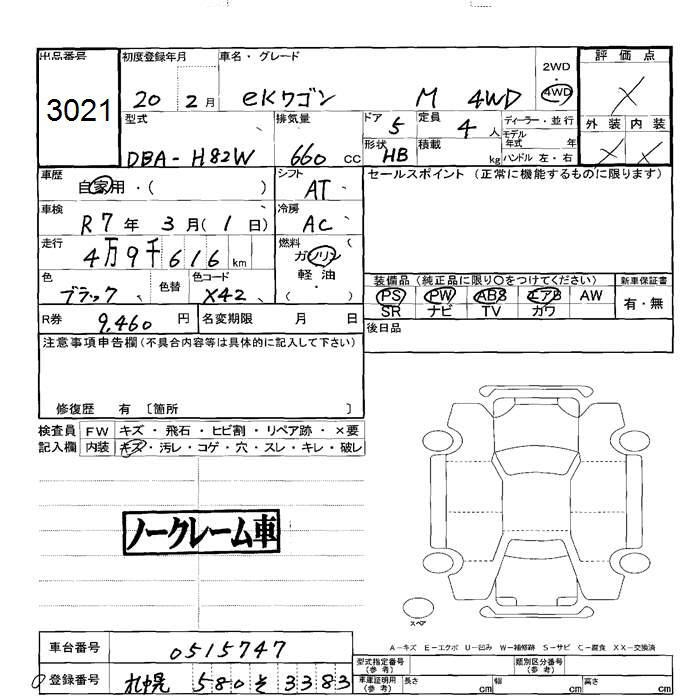 出品番号 初度登録年月 車名・グレード 2WD 評価点
3021 20 2月 eKワゴン M 4WD 4WD
型式 排気量 ドア 5 定員 4人 ディーラー・並行 外装 内装
モデル年式 年
DBA-H82W 660 cc 形状 HB 積載 kg ハンドル 左・右
車歴 シフト セールスポイント (正常に機能するものに限ります)
自家用・( ) AT
車検 冷房
R7年 3月(1日) AC
走行 燃料
4万9千616 km ガソリン
軽油
( )
色 色替 色コード 装備品 (純正品に限り○をつけてください) 新車保証書
ブラック X42 PS PW ABS エアB AW 有・無
SR ナビ TV カワ
R券 9,460 円 名変期限 月 日 後日品
注意事項申告欄(不具合内容等は具体的に記入して下さい)
修復歴 有 〔箇所 〕
検査員 FW キズ・飛石・ヒビ割・リペア跡・×要
記入欄 内装 キズ・汚レ・コゲ・穴・スレ・キレ・破レ
ノークレーム車
スペア
A-キズ E-エクボ U-凹み W-補修跡 S-サビ C-腐食 XX-交換済
車台番号 0515747
型式指定番号(参考) 類別区分番号(参考)
登録番号 札幌 580 そ 3383
車庫証明用(参考) 長さ cm 幅 cm 高さ cm